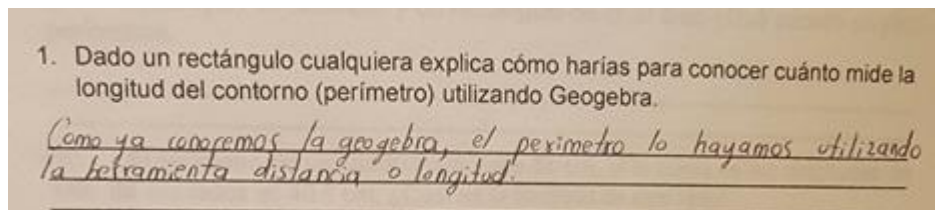 1. Dado un rectángulo cualquiera explica cómo harías para conocer cuánto mide la
longitud del contorno (perímetro) utilizando Geogebra.
Como ya conocemos la geogebra, el perimetro lo hayamos utilizando
la herramienta distancia o longitud.